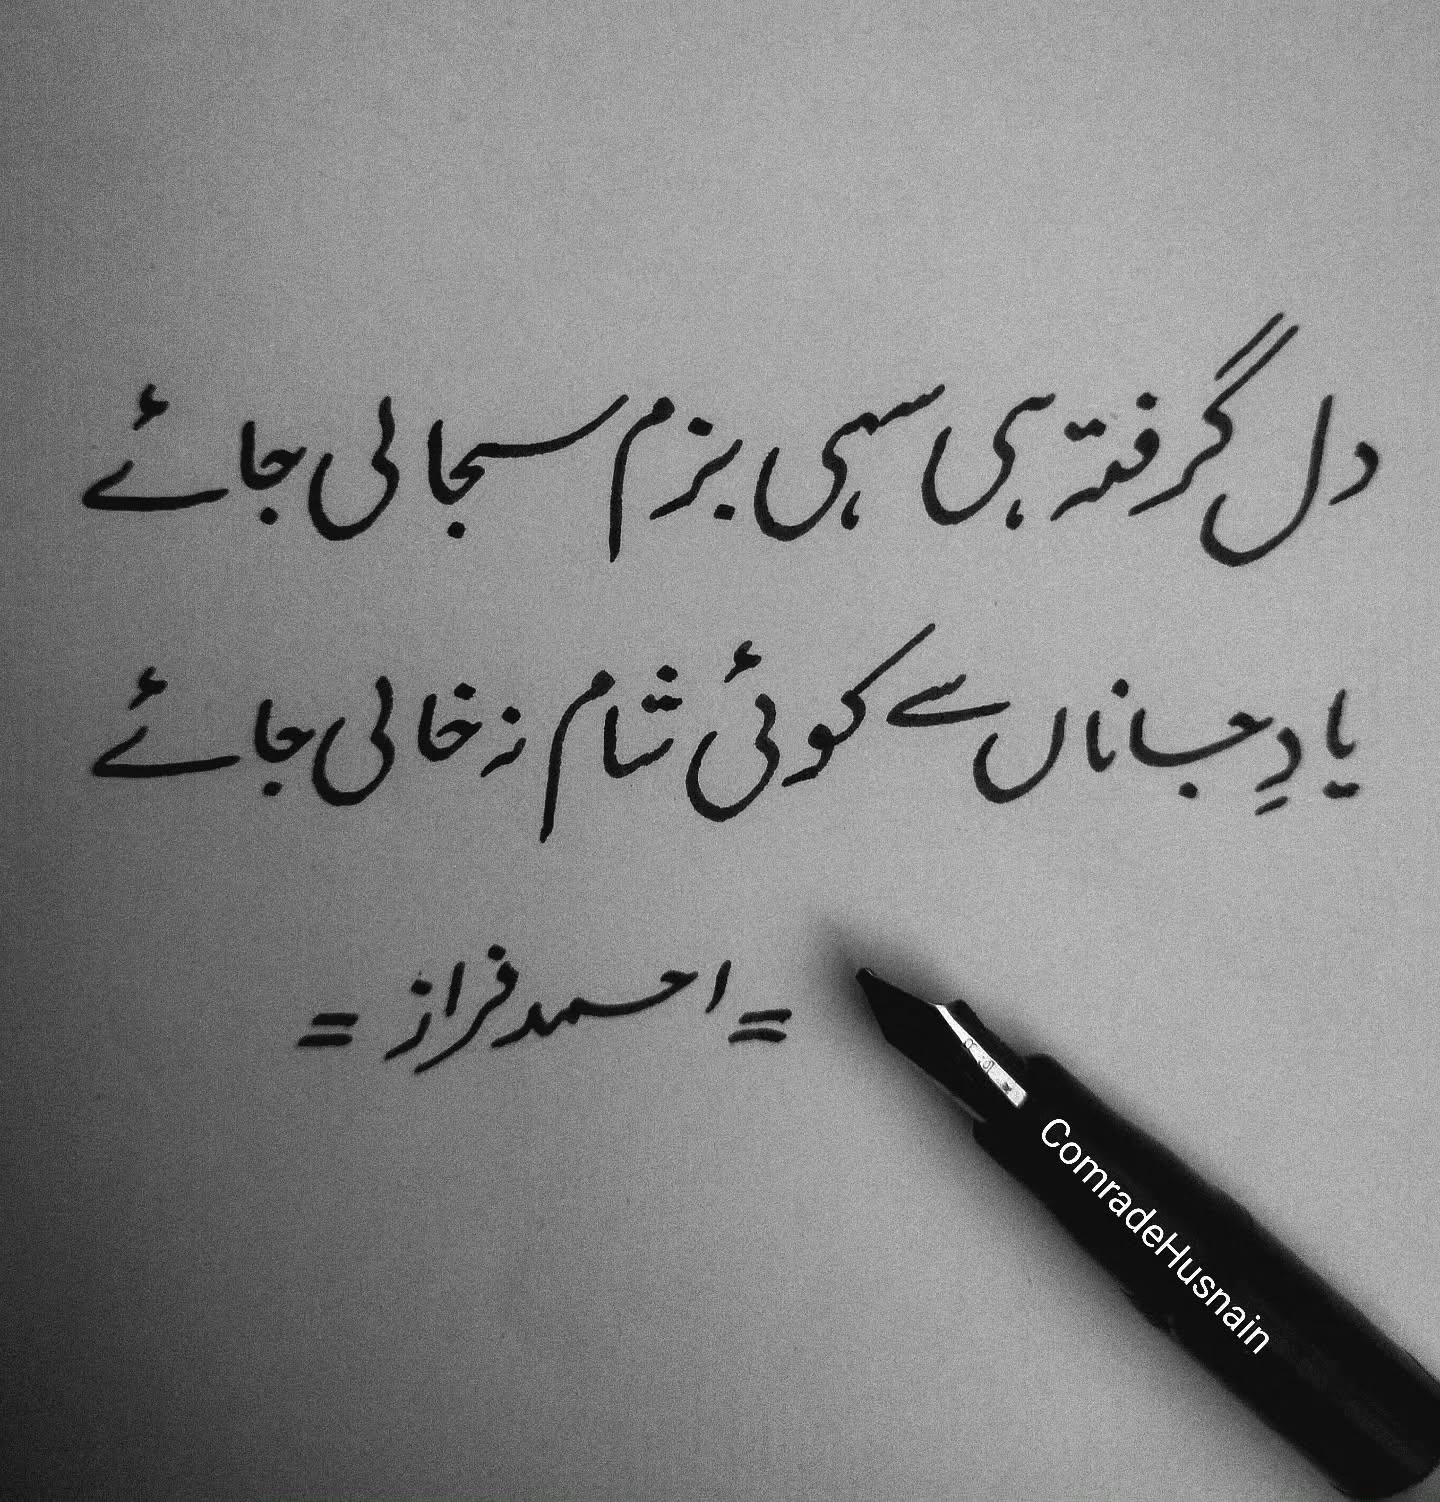 دل گرفتہ ہی سہی بزم سجالی جائے
یادِ جاناں سے کوئی شام نہ خالی جائے
= احمد فراز =
ComradeHusnain